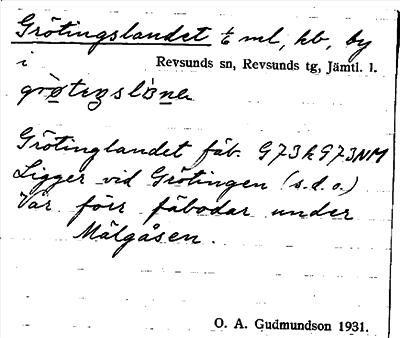 Grötingslandet t ml, hb, by
i Revsunds sn, Revsunds tg, Jämtl. l.
Grötinglandet fäb. G73h G73NM
Ligger vid Grötingen (s.d.o.)
Var förr fäbodar under
Mälgåsen.
O. A. Gudmundson 1931.